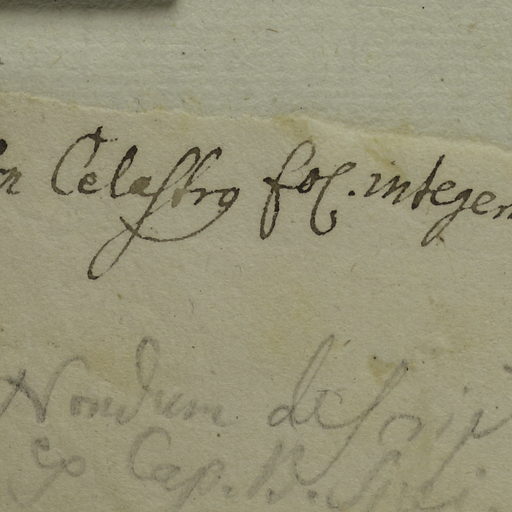 Celastro fol. integer
Nondum descrip
Cap. B. Spei.